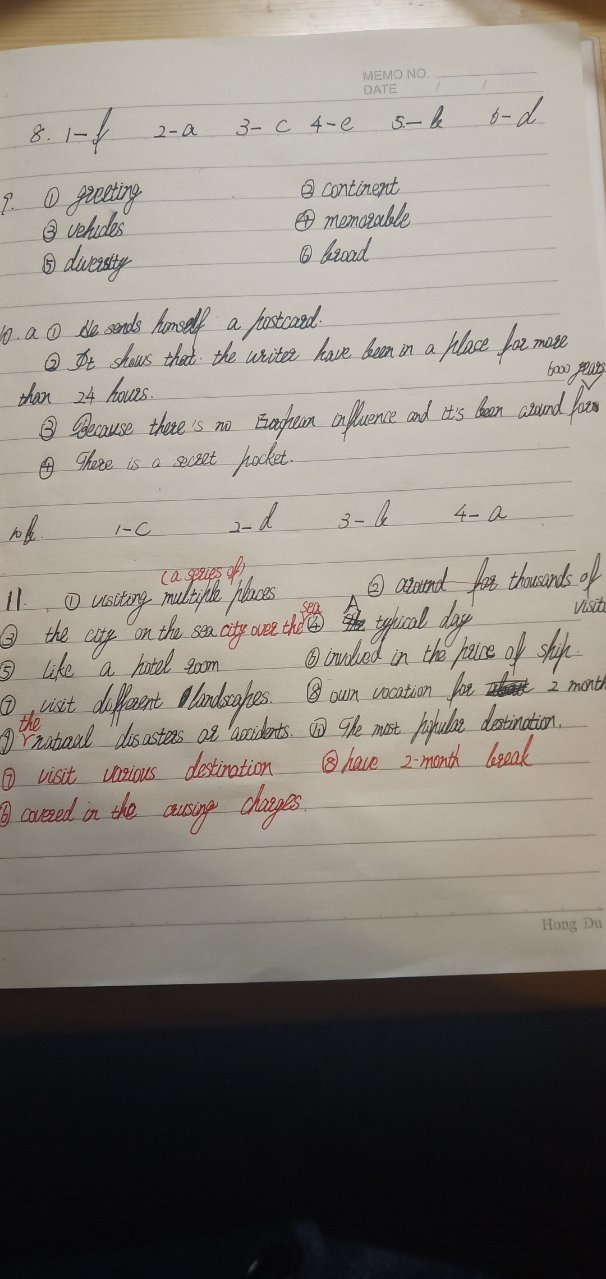 MEMO NO.
DATE / /
8. 1-f 2-a 3-c 4-e 5-b 6-d
9. ① greeting ② continent
③ vehicles ④ memorable
⑤ diversity ⑥ broad
10. a ① He sends himself a postcard.
② It shows that the writer have been in a place for more
than 24 hours.
6000 years
③ Because there's no European influence and it's been around for
④ There is a secret pocket.
10 b. 1-c 2-d 3-b 4-a
(a series of)
11. ① visiting multiple places ② around for thousands of
visit
③ the city on the sea city over the sea ④ A typical day
⑤ like a hotel room ⑥ involved in the price of ship.
⑦ visit different landscapes. ⑧ own vocation for 2 month
⑨ the natural disasters or accidents. ⑩ The most popular destination.
⑦ visit various destination ⑧ have 2-month break
⑥ covered in the crusing charges.
Hong Du